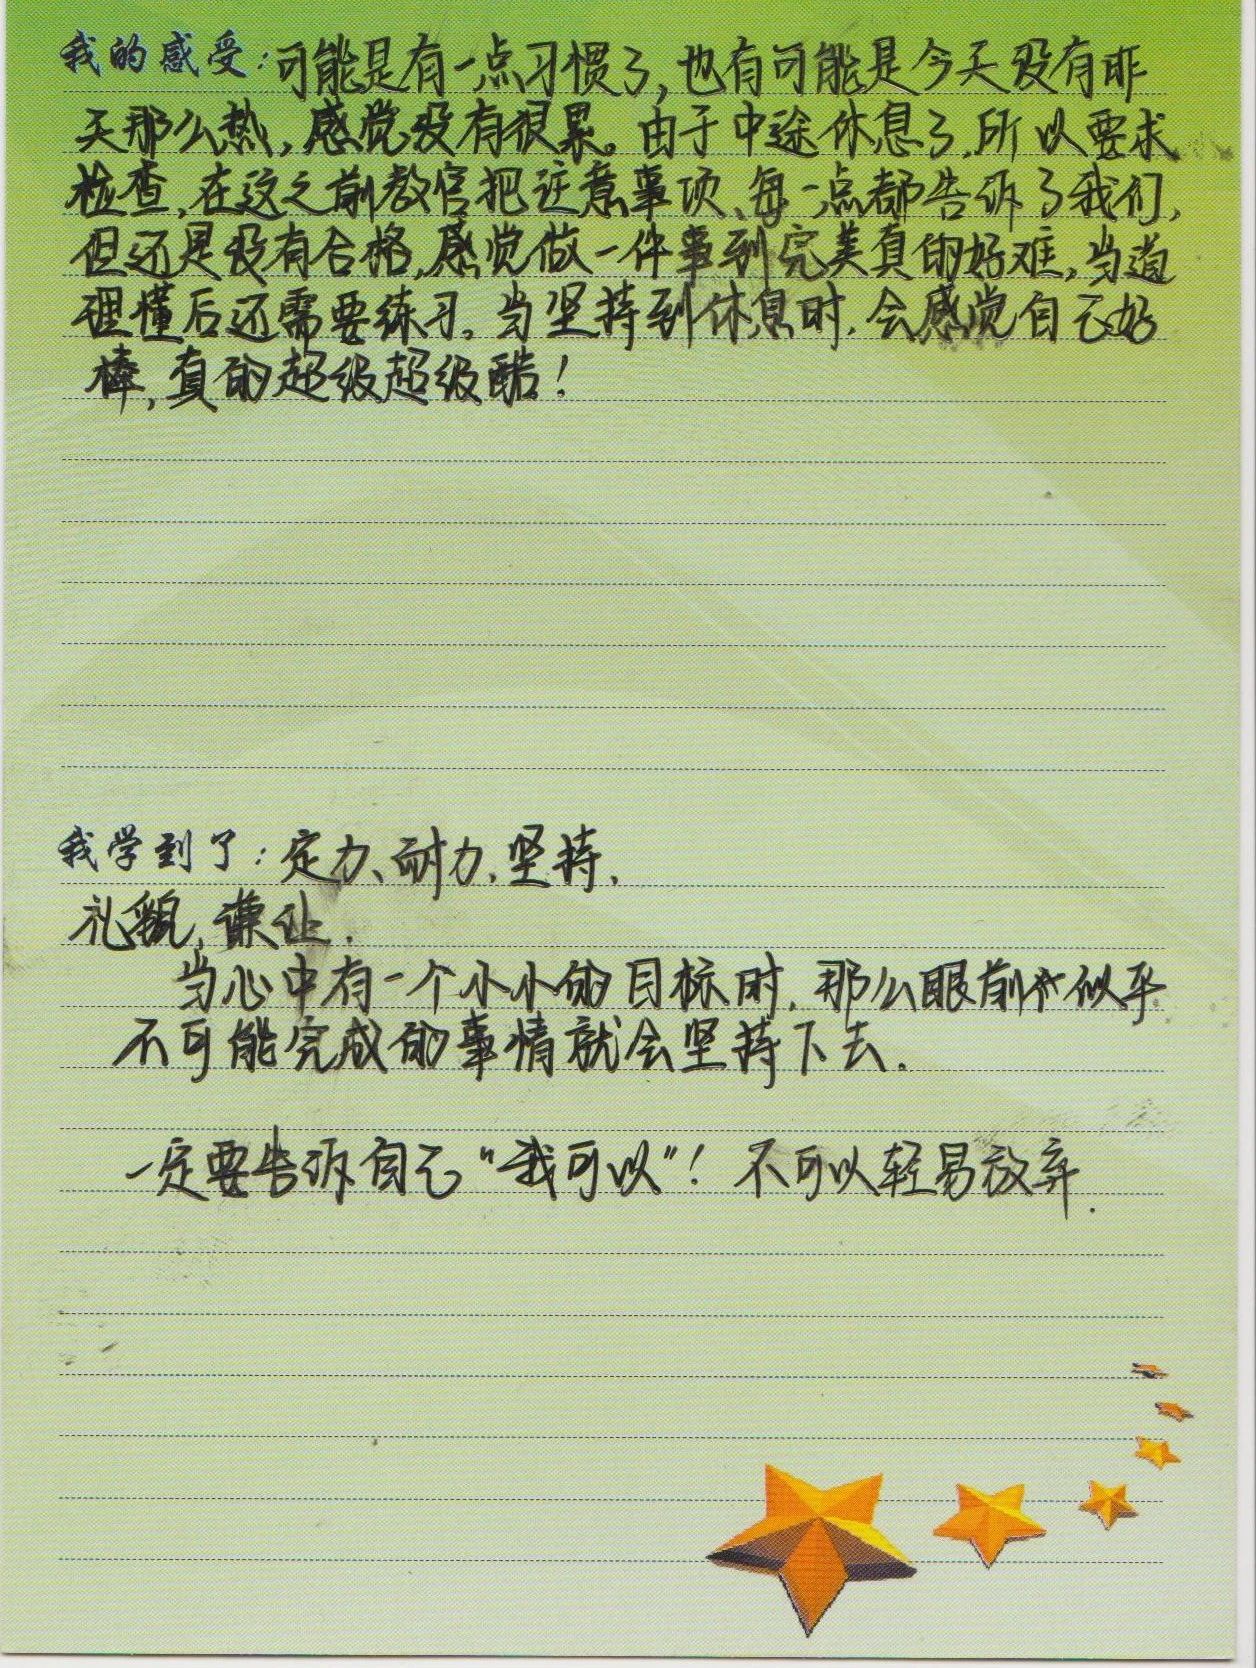 我的感受：可能是有一点习惯了，也有可能是今天没有昨
天那么热，感觉没有很累。由于中途休息了，所以要求
检查，在这之前教官把注意事项、每一点都告诉了我们，
但还是没有合格，感觉做一件事到完美真的好难，当道
理懂后还需要练习。当坚持到休息时，会感觉自己好
棒，真的超级超级酷！
我学到了：定力、耐力，坚持，
礼貌，谦让．
当心中有一个小小的目标时，那么眼前似乎
不可能完成的事情就会坚持下去．
一定要告诉自己“我可以”！不可以轻易放弃．